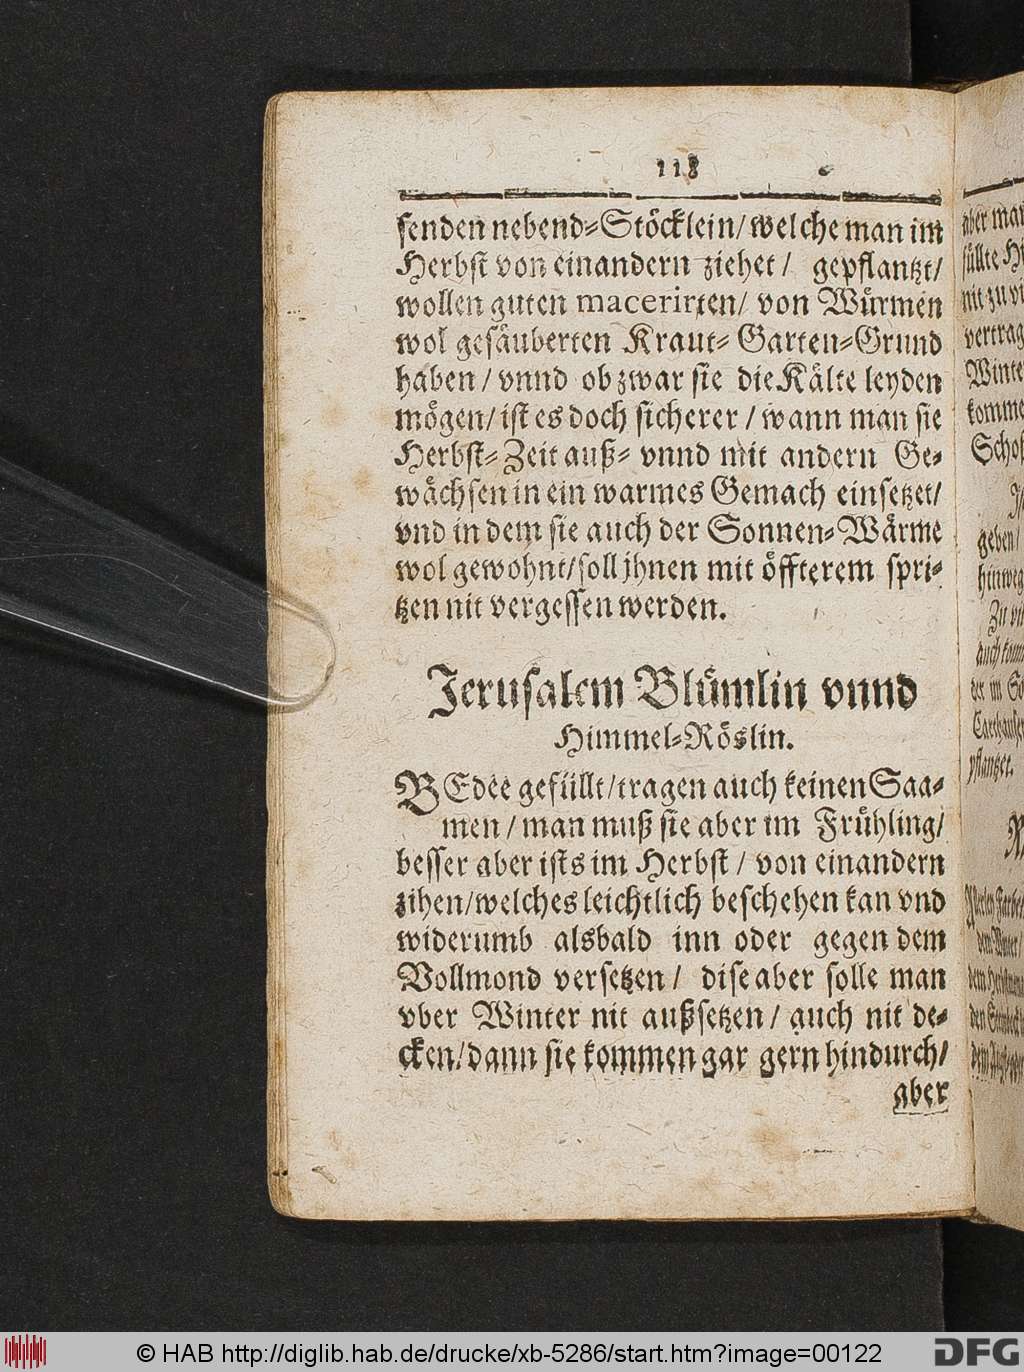 118
senden nebend-Stöcklein/ welche man im
Herbst von einandern ziehet/ gepflantzt/
wollen guten macerirten/ von Würmen
wol gesäuberten Kraut-Garten-Grund
haben/ vnnd ob zwar sie die Kälte leyden
mögen/ ist es doch sicherer/ wann man sie
Herbst-Zeit auß- vnnd mit andern Ge-
wächsen in ein warmes Gemach einsetzet/
vnd in dem sie auch der Sonnen-Wärme
wol gewohnt/ soll jhnen mit öffterem spri-
tzen nit vergessen werden.
Jerusalem Blümlin vnnd
Himmel-Röslin.
BEdee gefüllt/ tragen auch keinen Saa-
men/ man muß sie aber im Frühling/
besser aber ists im Herbst/ von einandern
zihen/ welches leichtlich beschehen kan vnd
widerumb alsbald inn oder gegen dem
Vollmond versetzen/ dise aber solle man
vber Winter nit außsetzen/ auch nit de-
cken/ dann sie kommen gar gern hindurch/
aber
aber man
füllte
nit zu
vertrag
Winte
komme
geben/
hinweg
Zu
auch
im
pflantzet.
© HAB http://diglib.hab.de/drucke/xb-5286/start.htm?image=00122
DFG